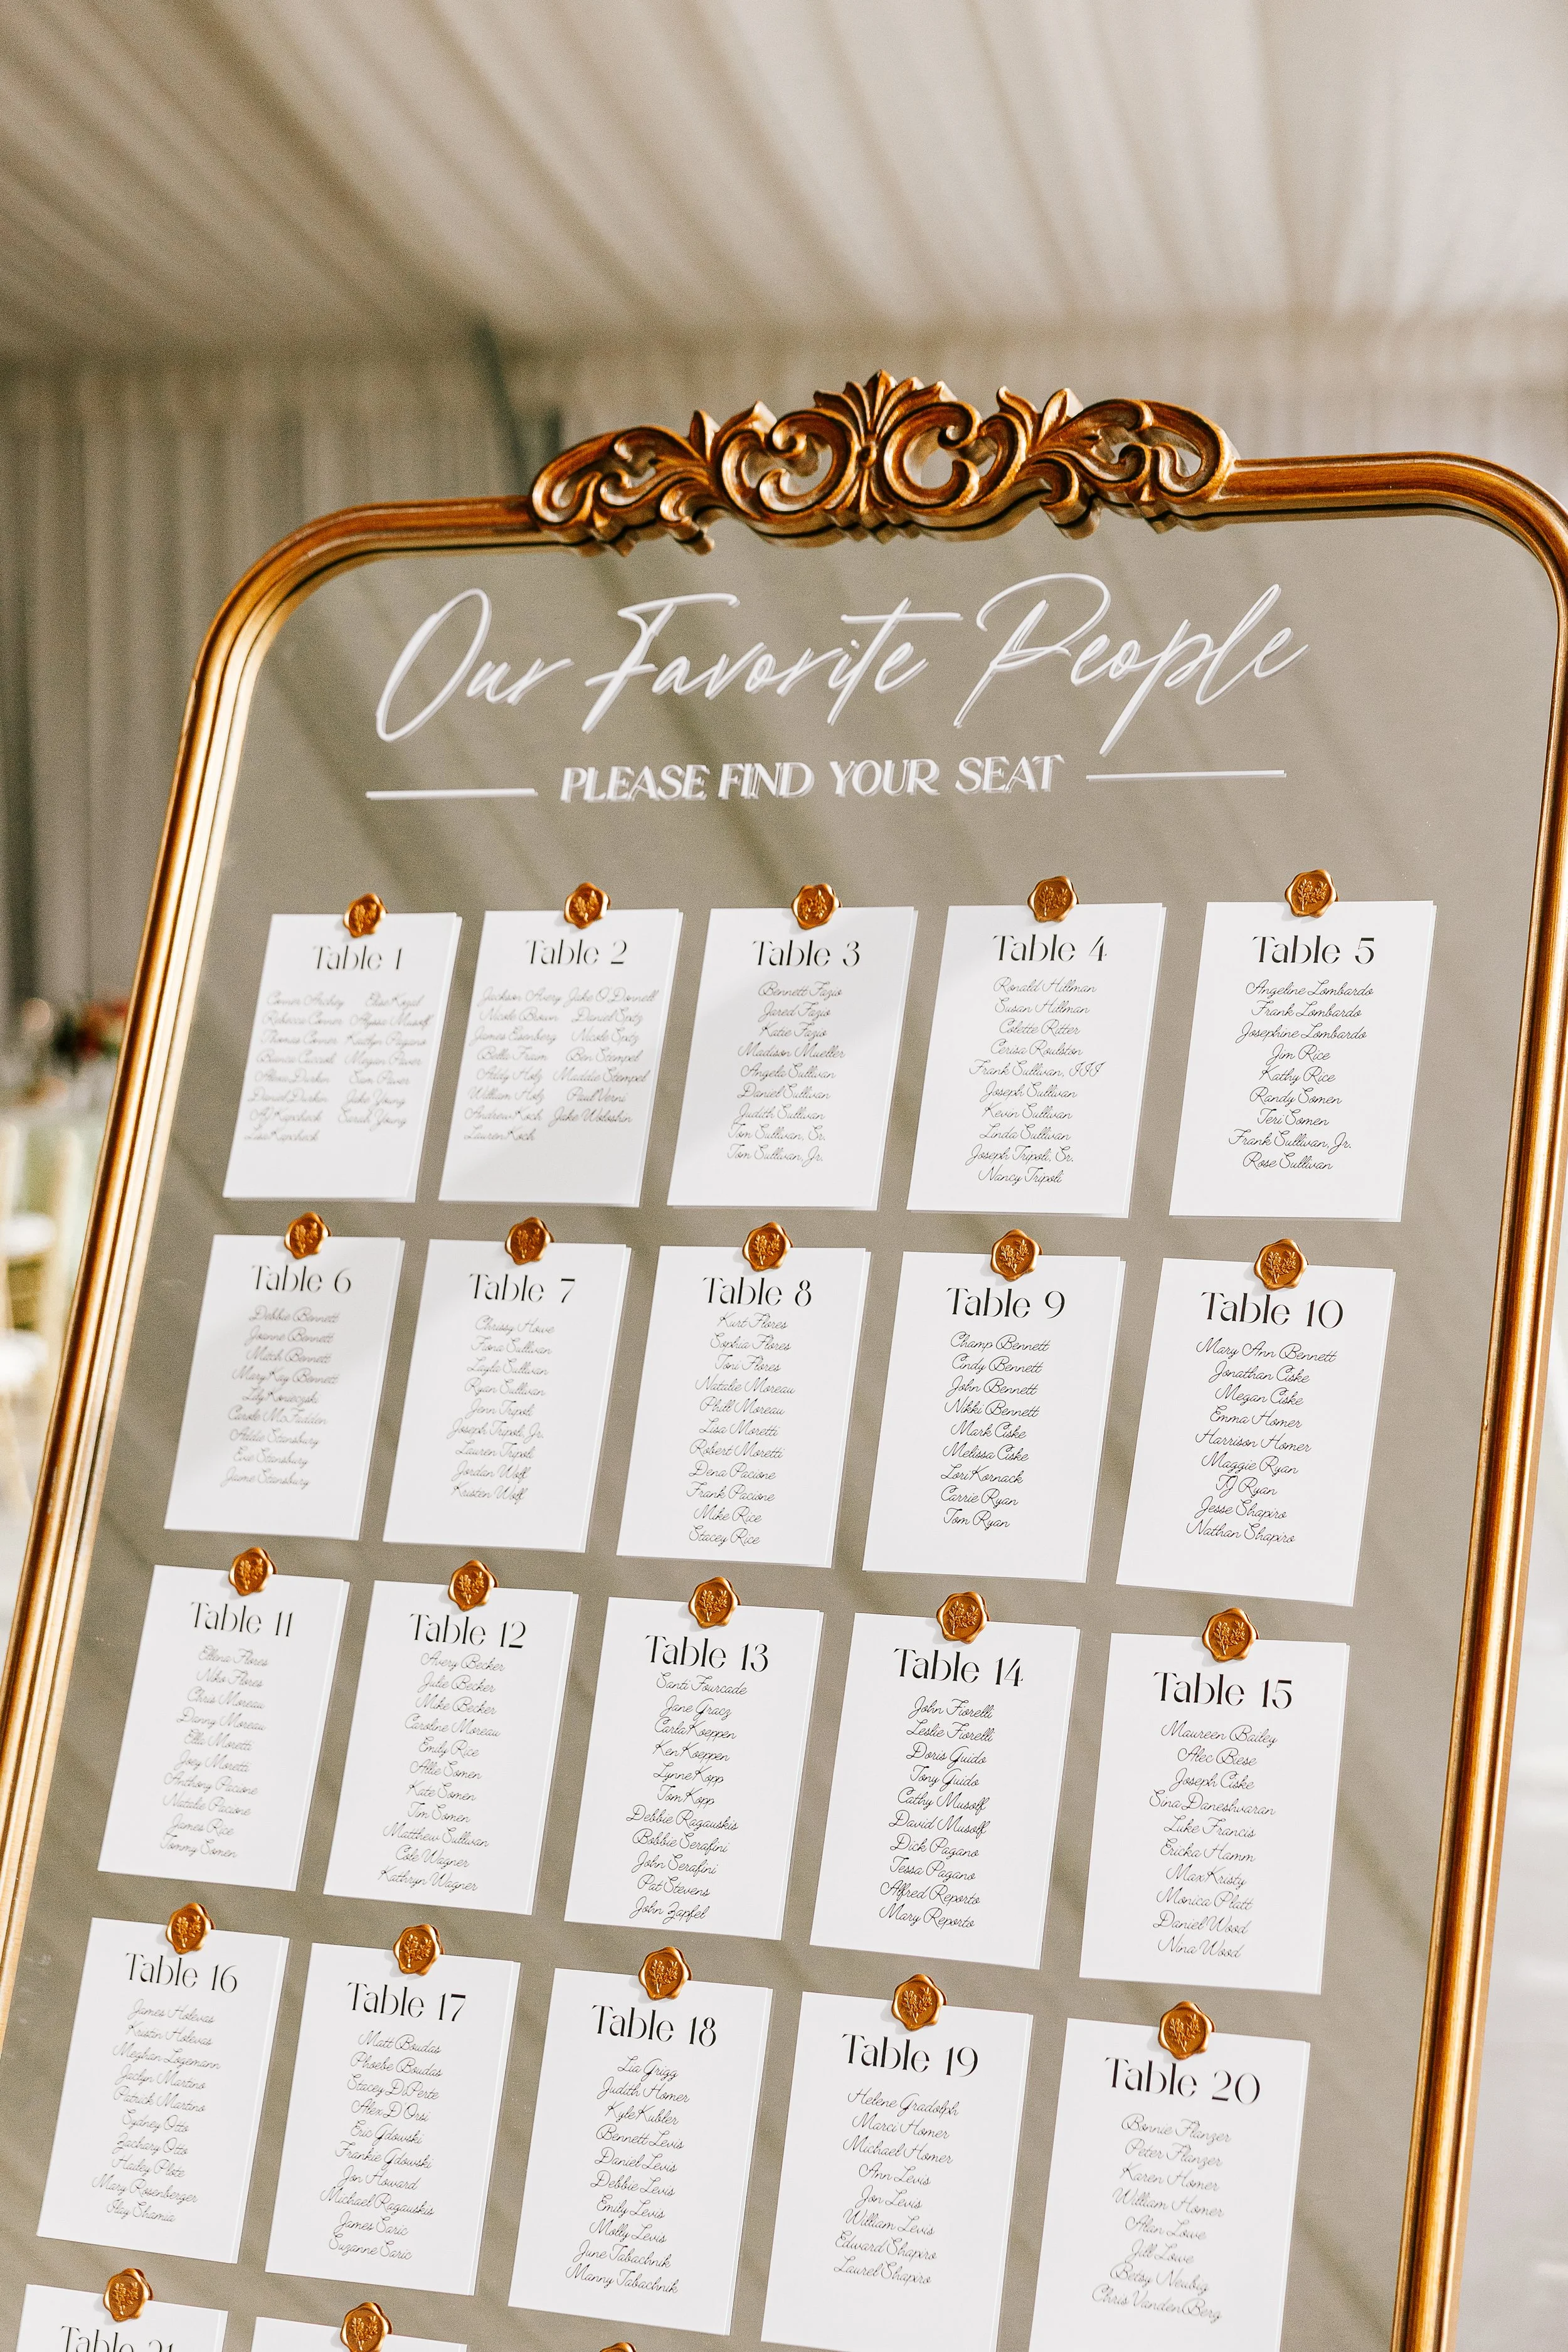 Our Favorite People
PLEASE FIND YOUR SEAT
Table 1
Conner Archey Elise Kozal
Rebecca Conner Alyssa Musolf
Thomas Conner Kaitlyn Pagano
Bianca Megan Paver
Alexa Durkin Sam Paver
Daniel Durkin Jake Young
AJ Kapcheck Sarah Young
Lisa Kapcheck
Table 2
Jackson Avery Jake O'Donnell
Nicole Brown Daniel Spitz
James Eisenberg Nicole Spitz
Bella Fraum Ben Stempel
Addy Holz Maddie Stempel
William Holz Paul Verni
Andrew Koch Jake Woloshin
Lauren Koch
Table 3
Bennett Fazio
Jared Fazio
Katie Fazio
Madison Mueller
Angela Sullivan
Daniel Sullivan
Judith Sullivan
Tom Sullivan, Sr.
Tom Sullivan, Jr.
Table 4
Ronald Hillman
Susan Hillman
Colette Ritter
Cerisa Roulston
Frank Sullivan, III
Joseph Sullivan
Kevin Sullivan
Linda Sullivan
Joseph Tripoli, Sr.
Nancy Tripoli
Table 5
Angeline Lombardo
Frank Lombardo
Josephine Lombardo
Jim Rice
Kathy Rice
Randy Somen
Teri Somen
Frank Sullivan, Jr.
Rose Sullivan
Table 6
Debbie Bennett
Joanne Bennett
Mitch Bennett
Mary Kay Bennett
Lily Konieczski
Carole McFadden
Addie Stansbury
Evie Stansbury
Jaime Stansbury
Table 7
Chrissy Howe
Fiona Sullivan
Layla Sullivan
Ryan Sullivan
Jenn Tripoli
Joseph Tripoli, Jr.
Lauren Tripoli
Jordan Wolf
Kristen Wolf
Table 8
Kurt Flores
Sophia Flores
Toni Flores
Natalie Moreau
Phill Moreau
Lisa Moretti
Robert Moretti
Dena Pacione
Frank Pacione
Mike Rice
Stacey Rice
Table 9
Champ Bennett
Cindy Bennett
John Bennett
Nikki Bennett
Mark Ciske
Melissa Ciske
Lori Kornack
Carrie Ryan
Tom Ryan
Table 10
Mary Ann Bennett
Jonathan Ciske
Megan Ciske
Emma Homer
Harrison Homer
Maggie Ryan
TJ Ryan
Jesse Shapiro
Nathan Shapiro
Table 11
Ellena Flores
Niko Flores
Chris Moreau
Danny Moreau
Ella Moretti
Joey Moretti
Anthony Pacione
Natalie Pacione
James Rice
Tommy Somen
Table 12
Avery Becker
Julie Becker
Mike Becker
Caroline Moreau
Emily Rice
Allie Somen
Kate Somen
Tim Somen
Matthew Sullivan
Cole Wagner
Kathryn Wagner
Table 13
Santi Fourcade
Jane Gracz
Carla Koeppen
Ken Koeppen
Lynne Kopp
Tom Kopp
Debbie Ragauskis
Bobbie Serafini
John Serafini
Pat Stevens
John Zapfel
Table 14
John Fiorelli
Leslie Fiorelli
Doris Guido
Tony Guido
Cathy Musolf
David Musolf
Dick Pagano
Tessa Pagano
Alfred Reporto
Mary Reporto
Table 15
Maureen Bailey
Alec Biese
Joseph Ciske
Sina Daneshvaran
Luke Francis
Ericka Hamm
Max Kristy
Monica Platt
Daniel Wood
Nina Wood
Table 16
James Holevas
Kristin Holevas
Meghan Logemann
Jaclyn Martino
Patrick Martino
Sydney Otto
Zachary Otto
Hailey Plote
Mary Rosenberger
Fay Shamia
Table 17
Matt Boudas
Phoebe Boudas
Stacey DiPerte
Alex D'Orsi
Eric Gdowski
Frankie Gdowski
Jon Howard
Michael Ragauskis
James Saric
Suzanne Saric
Table 18
Lia Grigg
Judith Homer
Kyle Kubler
Bennett Levis
Daniel Levis
Debbie Levis
Emily Levis
Molly Levis
June Tabachnik
Manny Tabachnik
Table 19
Helene Gradolph
Marci Homer
Michael Homer
Ann Levis
Jon Levis
William Levis
Edward Shapiro
Laurel Shapiro
Table 20
Bonnie Flanzer
Peter Flanzer
Karen Homer
William Homer
Alan Lowe
Jill Lowe
Betsy Neubig
Chris VandenBerg
Table 21